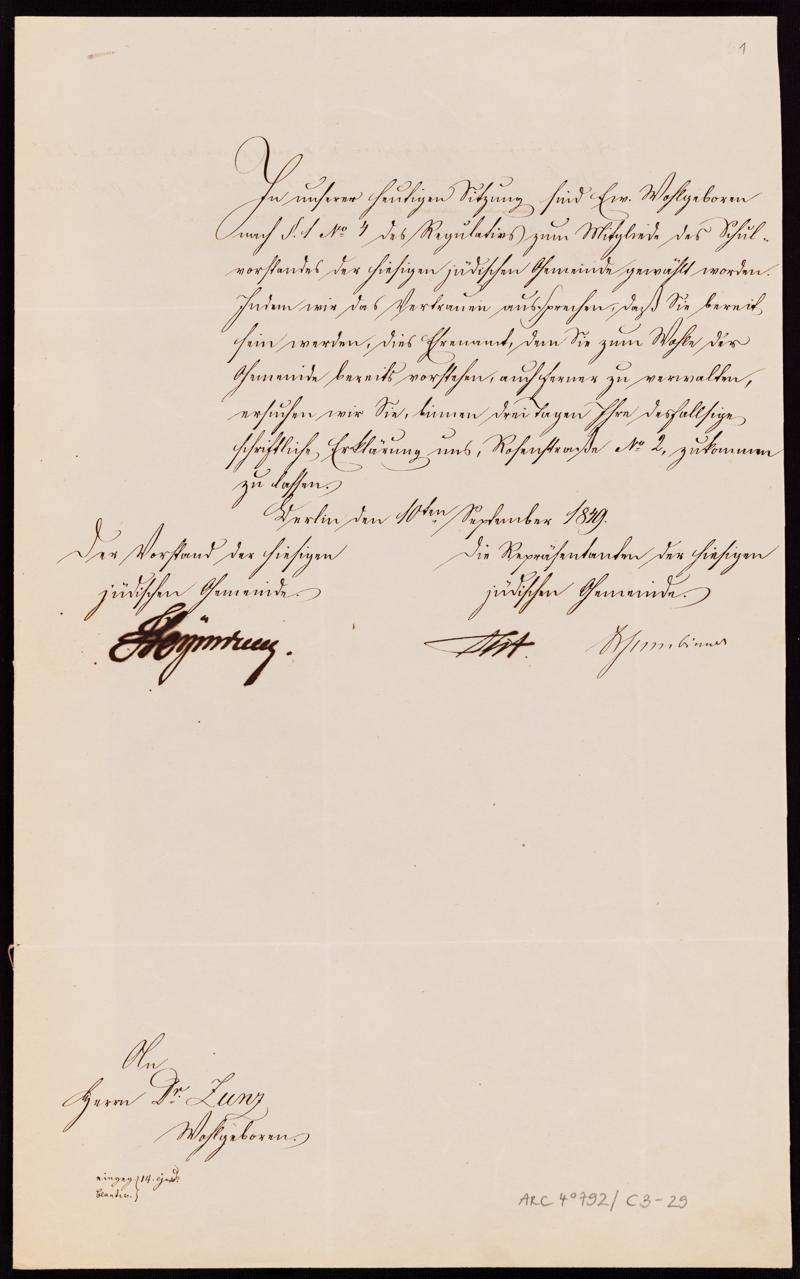 1
In unserer heutigen Sitzung sind Ew. Wohlgeboren
nach §. 1 No 4 des Regulativs zum Mitgliede des Schul-
vorstandes der hiesigen jüdischen Gemeinde gewählt worden.
Indem wir das Vertrauen aussprechen, daß Sie bereit
sein werden, dies Ehrenamt, dem Sie zum Wohle der
Gemeinde bereits vorstehen, auch ferner zu verwalten,
ersuchen wir Sie, binnen drei Tagen Ihre desfallsige
schriftliche Erklärung uns, Rosenstraße No 2, zukommen
zu lassen.
Berlin den 10ten September 1849.
Der Vorstand der hiesigen
jüdischen Gemeinde.
Die Repräsentanten der hiesigen
jüdischen Gemeinde.
An
Herrn Dr. Zunz
Wohlgeboren.
eingeg. 14.
ARC 4° 792 / C3-29